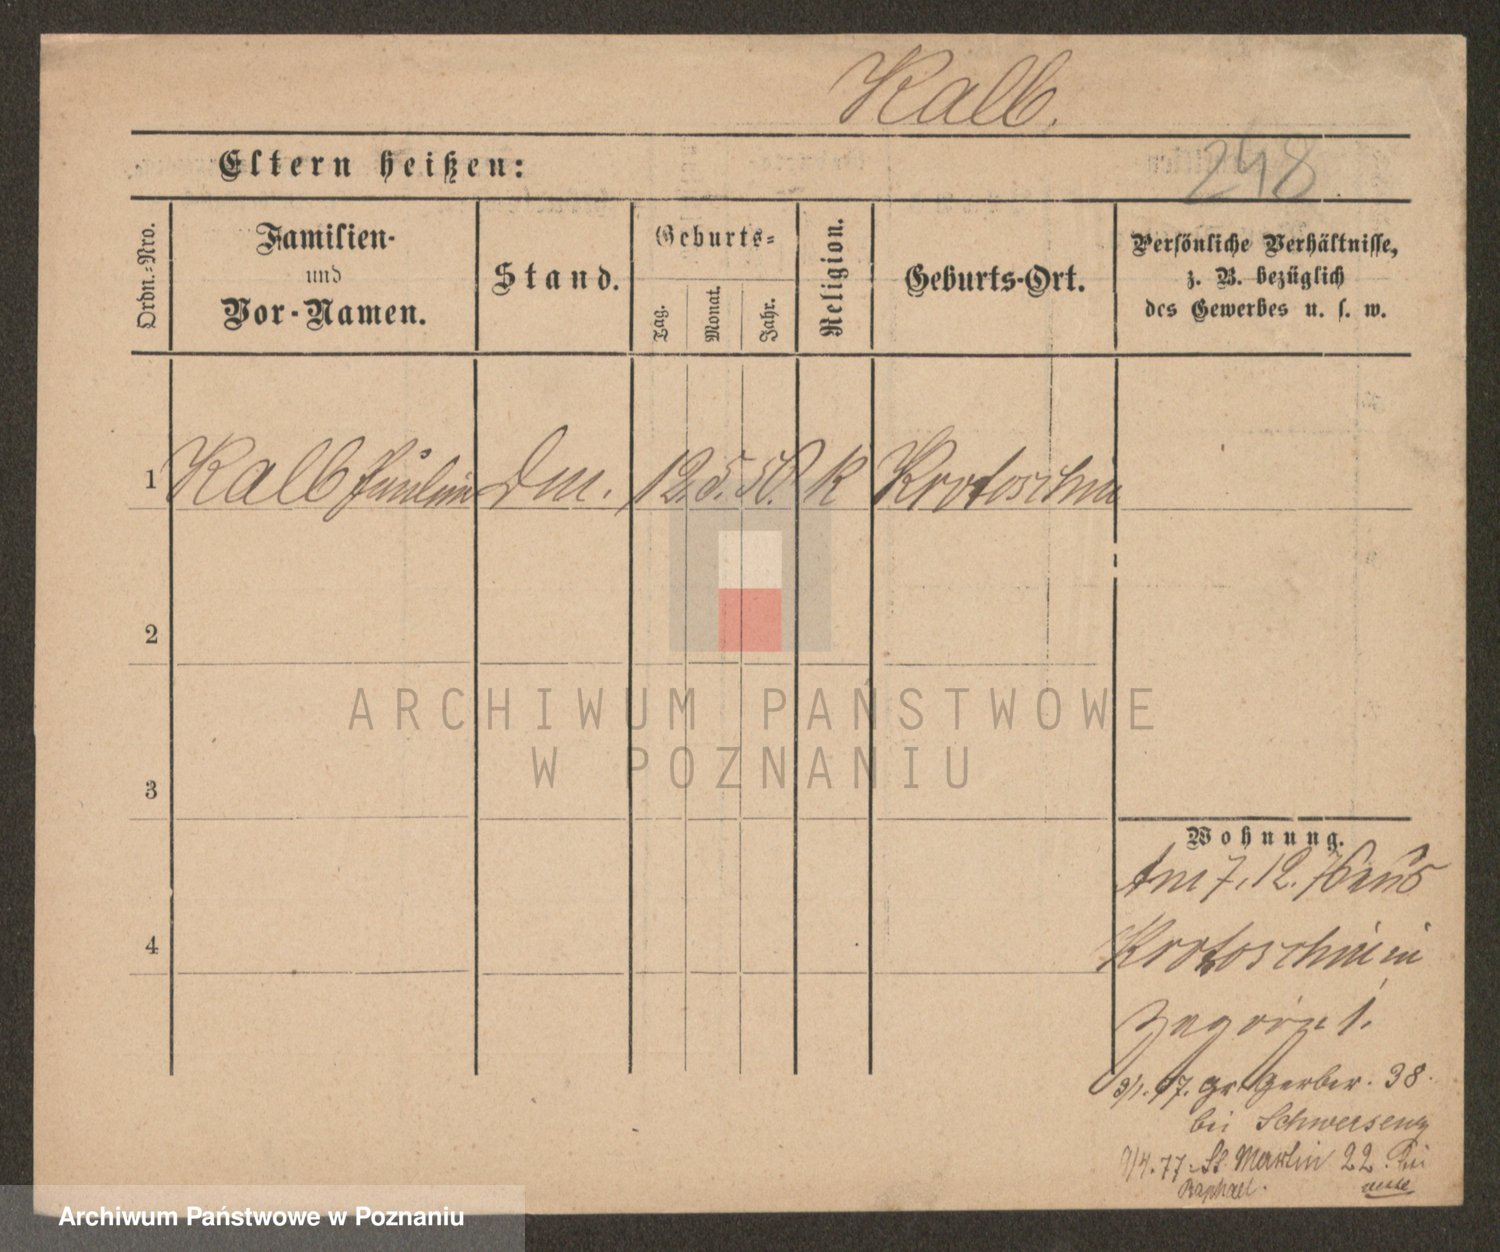 Kalb.
248
Eltern heißen:
Ordn.-Nro.
Familien-
und
Vor-Namen.
Stand.
Geburts-
Tag.
Monat.
Jahr.
Religion.
Geburts-Ort.
Persönliche Verhältnisse,
z. B. bezüglich
des Gewerbes u. s. w.
1 Kalb Paulin Dm. 12. 5. 50. k Krotoschin
2
3
4
Wohnung.
Am 7. 12. 76 aus
Krotoschin in
Zagórze 1.
3/1. 77. Gr. Gerber. 38.
bei Schwersenz
9/4. 77. St Martin 22. bei
Raphael.
ARCHIWUM PAŃSTWOWE
W POZNANIU
Archiwum Państwowe w Poznaniu